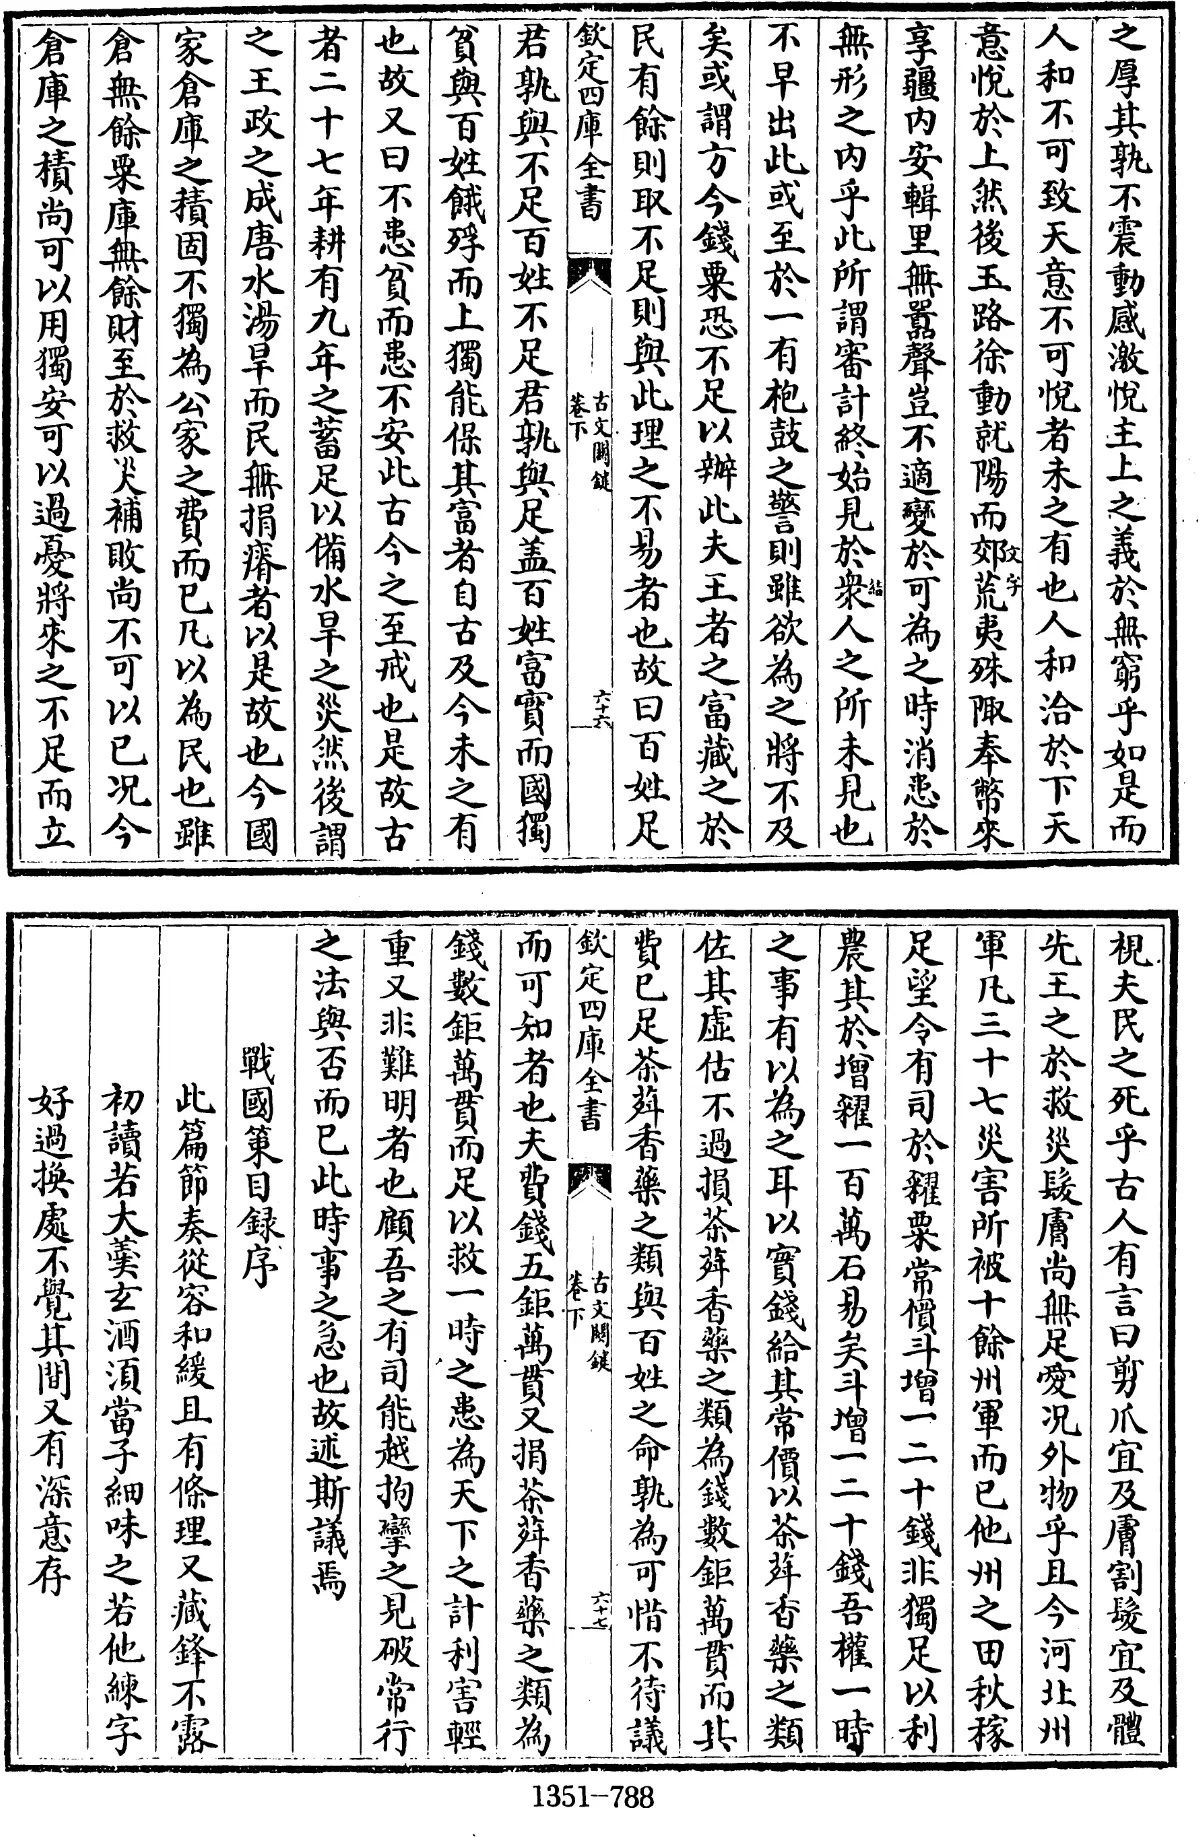 之厚其孰不震動感激悅主上之義於無窮乎如是而
人和不可致天意不可悅者未之有也人和洽於下天
意悅於上然後玉路徐動就陽而郊荒夷殊陬奉幣來
文字
享疆内安輯里無囂聲豈不適變於可為之時消患於
無形之内乎此所謂審計終始見於衆人之所未見也
結
不早出此或至於一有枹鼓之警則雖欲為之將不及
矣或謂方今錢粟恐不足以辦此夫王者之富藏之於
民有餘則取不足則與此理之不易者也故曰百姓足
欽定四庫全書
古文關鍵
卷下
六十六
君孰與不足百姓不足君孰與足盖百姓富實而國獨
貧與百姓餓殍而上獨能保其富者自古及今未之有
也故又曰不患貧而患不安此古今之至戒也是故古
者二十七年耕有九年之蓄足以備水旱之災然後謂
之王政之成唐水湯旱而民無捐瘠者以是故也今國
家倉庫之積固不獨為公家之費而已凡以為民也雖
倉無餘粟庫無餘財至於救災補敗尚不可以已况今
倉庫之積尚可以用獨安可以過憂將來之不足而立
視夫民之死乎古人有言曰剪爪宜及膚割髮宜及體
先王之於救災髮膚尚無足愛况外物乎且今河北州
軍凡三十七災害所被十餘州軍而已他州之田秋稼
足望今有司於糴粟常價斗增一二十錢非獨足以利
農其於增糴一百萬石易矣斗增一二十錢吾權一時
之事有以為之耳以實錢給其常價以茶荈香藥之類
佐其虛估不過損茶荈香藥之類為錢數鉅萬貫而其
費已足茶荈香藥之類與百姓之命孰為可惜不待議
欽定四庫全書
古文關鍵
卷下
六十七
而可知者也夫費錢五鉅萬貫又捐茶荈香藥之類為
錢數鉅萬貫而足以救一時之患為天下之計利害輕
重又非難明者也顧吾之有司能越拘攣之見破常行
之法與否而已此時事之急也故述斯議焉
戰國策目録序
此篇節奏從容和緩且有條理又藏鋒不露
初讀若大羹玄酒須當子細味之若他練字
好過換處不覺其間又有深意存
1351-788